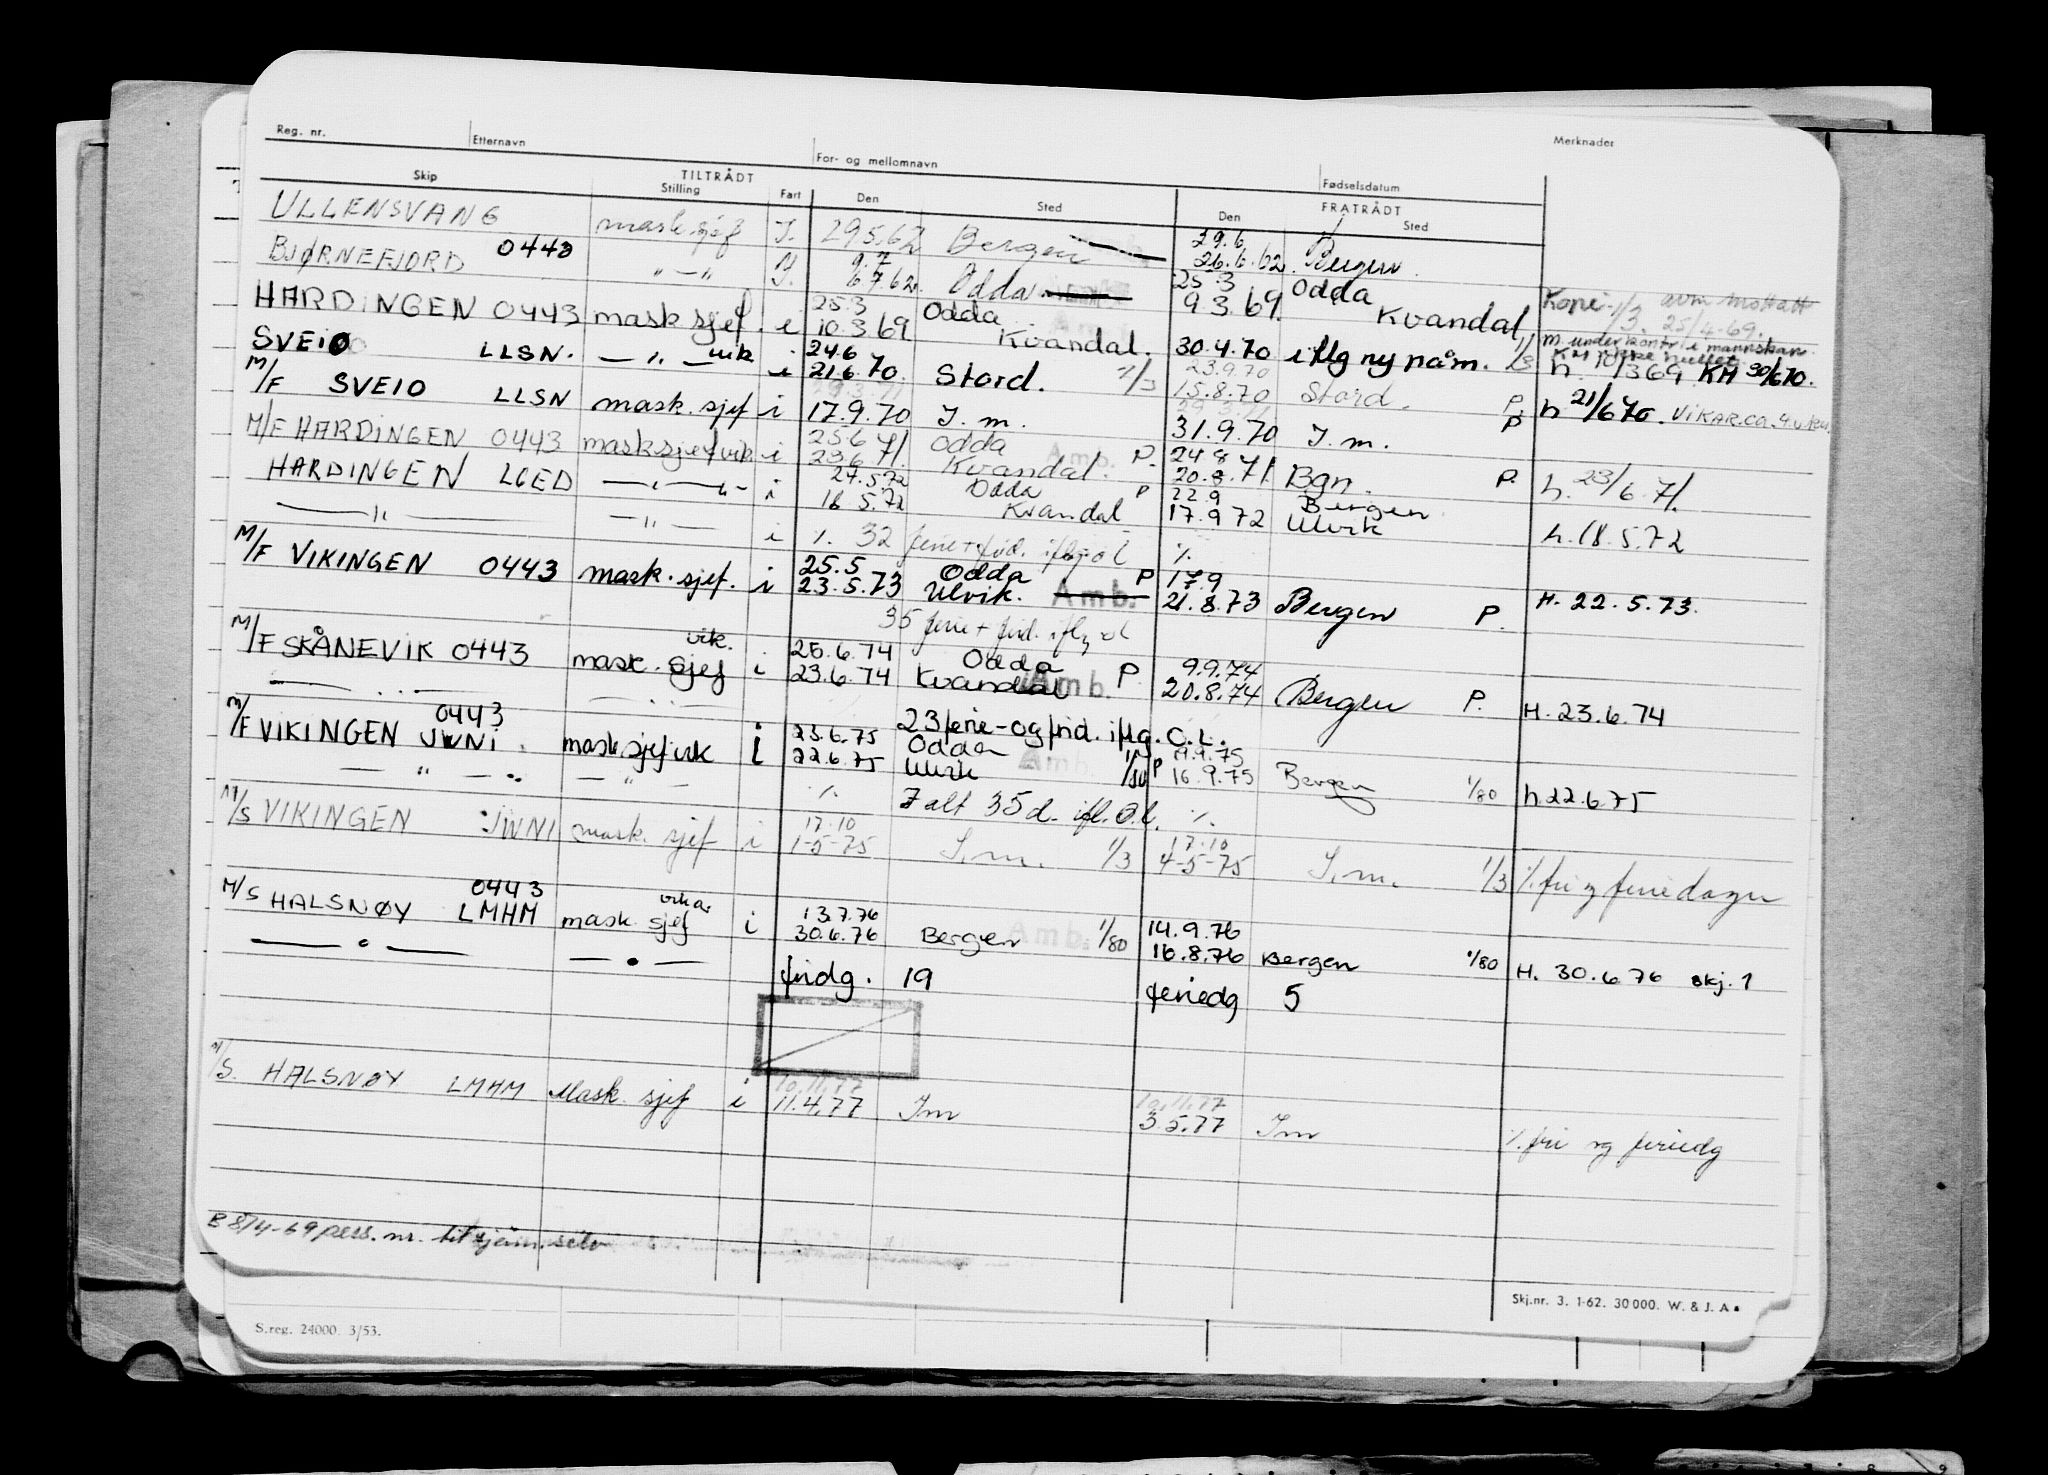 Reg. nr. Etternavn For- og mellomnavn Fødselsdatum Merknader
Skip TILTRÅDT FRATRÅDT
Stilling Fart Den Sted Den Sted
ULLENSVANG mask.sjef I. 29.5.62 Bergen 29.6 26.6.62 Bergen
BJØRNEFJORD 0443 " — " I. 9.7 6.7.62 Odda 25.3 9.3.69. Odda Kvandal
HARDINGEN 0443 mask sjef. i 25.3 10.3.69 Odda Kvandal. 30.4.70 i flg ny påm. 1/3
SVEIO LLSN. — " — vik i 24.6 21.6.70. Stord. 1/3 23.9.70 15.8.70 Stord. P. h 21/6 70. VIKAR. ca. 9 uker
M/F SVEIO LLSN mask. sjef i 17.9.70 I. m. 31.9.70 I. m. P
M/F HARDINGEN 0443 mask sjef vik i 25.6 23.6.71. Odda Kvandal. P. 24.8 20.8.71 Bgn. P. h. 23/6.71.
HARDINGEN LGED — " — " — i 24.5.72 16 5.72 Odda Kvandal P 22.9 17.9 72 Bergen Ulvik h. 18.5.72
— " — — " — i %. 32 ferie + frid. iflg. ol %
M/F VIKINGEN 0443 mask. sjef. i 25.5 23.5.73 Odda Ulvik. Amb. P 17.9 21.8.73 Bergen P. H. 22.5.73.
35 ferie + frid. iflg ol
M/F SKÅNEVIK 0443 mask. sjef vik. i 25.6.74 23.6.74 Odda Kvandal Amb. P 9.9.74 20.8.74 Bergen P. H. 23.6.74
23 ferie- og frid. iflg. O.L.
M/F VIKINGEN 0443 JWNI. mask.sjef vik i 23.6.75 22.6.75 Odda Ulvik Amb. 1/80 P 19.9.75 16.9.75 Bergen 1/80 h 22.6.75
— " — — " — %. I alt 35 d. ifl. O.l. %.
M/S VIKINGEN JWNI mask. sjef i 17.10 1-5-75 I. m. 1/3 17.10 4-5-75 I. m. 1/3 %. fri og feriedager
M/S HALSNØY 0443 LMHM mask. sjef vikar i 13.7.76 30.6.76 Bergen Amb. 1/80 14.9.76 16.8.76 Bergen 1/80 H. 30.6.76 skj. 1
fridg. 19 feriedg 5
M/S. HALSNØY LMHM Mask. sjef i 10.11.77 11.4.77 Im 10.11.77 3.5.77 Im %. fri og feriedg
B 8/4-69 pers. nr.
Skj.nr. 3. 1-62. 30000. W. & J. A.
S.reg. 24000. 3/53.